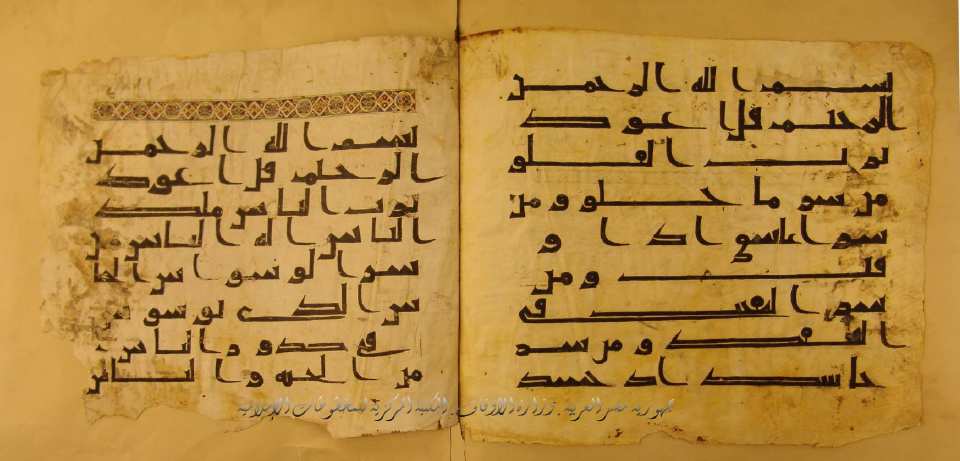 بسم الله الرحمن
الرحيم قل اعوذ
برب الفلق
من شر ما خلق و من
شر غاسق اذا و
قب و من
شر النفثت في
العقد و من شر
حاسد اذا حسد
بسم الله الرحمن
الرحيم قل اعوذ
برب الناس ملك
الناس اله الناس من
شر الوسواس الخنا
س الذي يوسوس
في صدور الناس
من الجنة و الناس
جمهورية مصر العربية - وزارة الأوقاف - المكتبة المركزية للمخطوطات الإسلامية